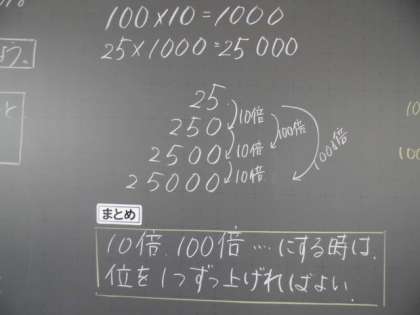 100×10=1000
25×1000=25000
よう。
と
25
250 10倍
2500 10倍 100倍
25000 10倍 1000倍
まとめ
10倍、100倍…にする時は、
位を1つずつ上げればよい。